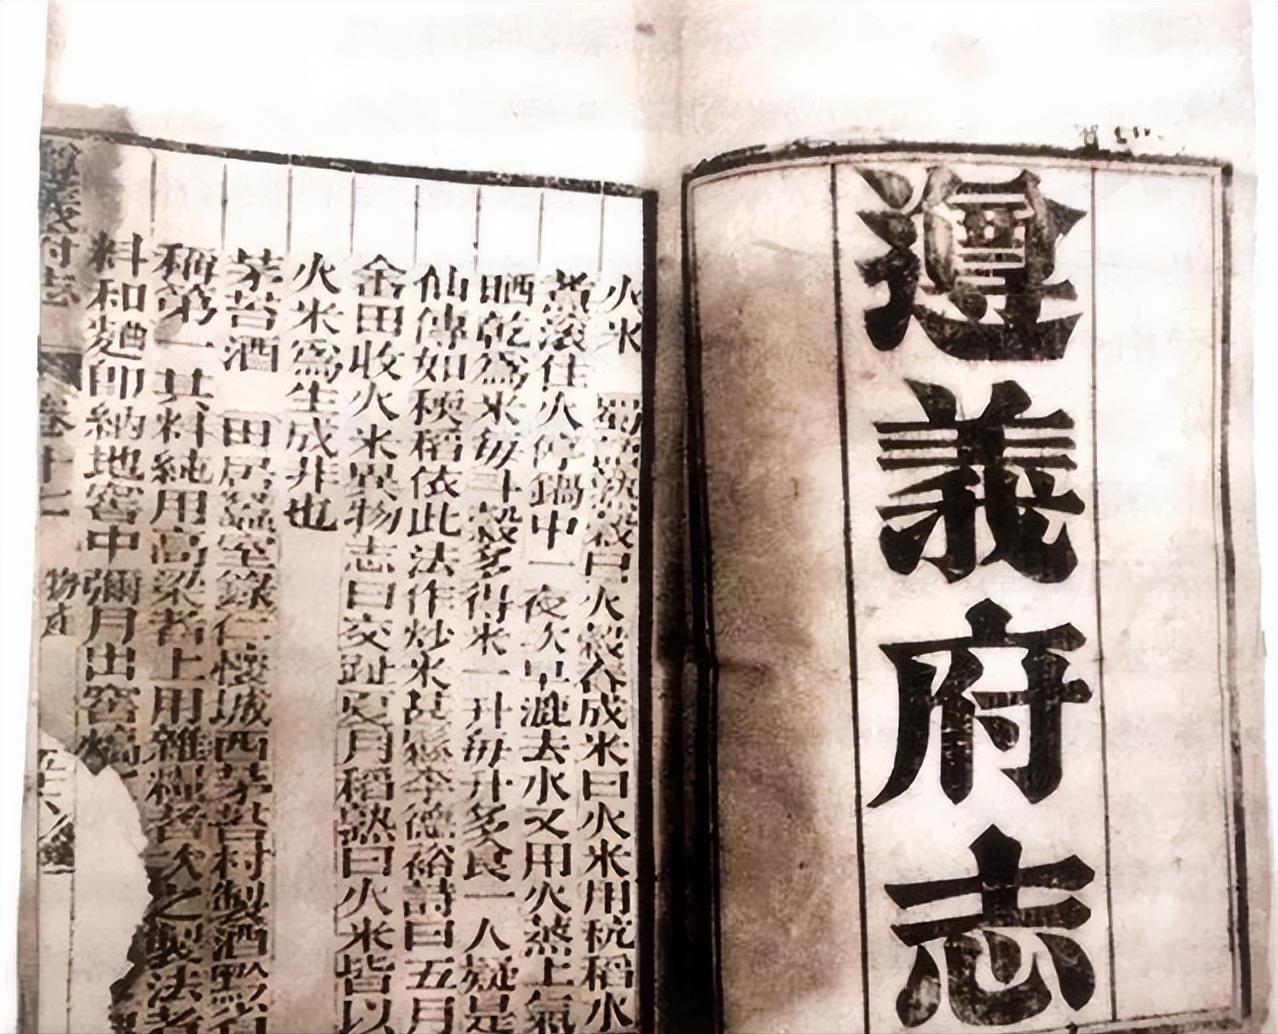 遵義府志
火米 蜀 穀曰火穀 成米曰火米用秔稻水
煮滚住火停鍋中一夜次早漉去水又用火蒸上氣
晒乾為米每斗穀多得米一升每升多食一人疑是
仙傳如稉稻依此法作炒米 李德裕詩曰五月
畬田收火米異物志曰交趾夏月稻熟曰火米皆以
火米爲生成非也
茅苔酒 田居蠶室錄仁懷城西茅苔村製酒黔省
稱第一其料純用高梁者上用雜糧者次之製法者
料和麯卽納地窖中彌月出窖
義府志
卷十七
物產